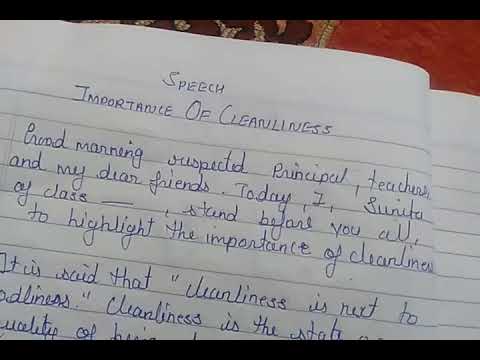 SPEECH
IMPORTANCE OF CLEANLINESS
Good morning respected Principal, teachers
and my dear friends. Today, I, Sunita
of class __, stand before you all,
to highlight the importance of cleanliness
It is said that "cleanliness is next to
odliness." Cleanliness is the state
uality of being